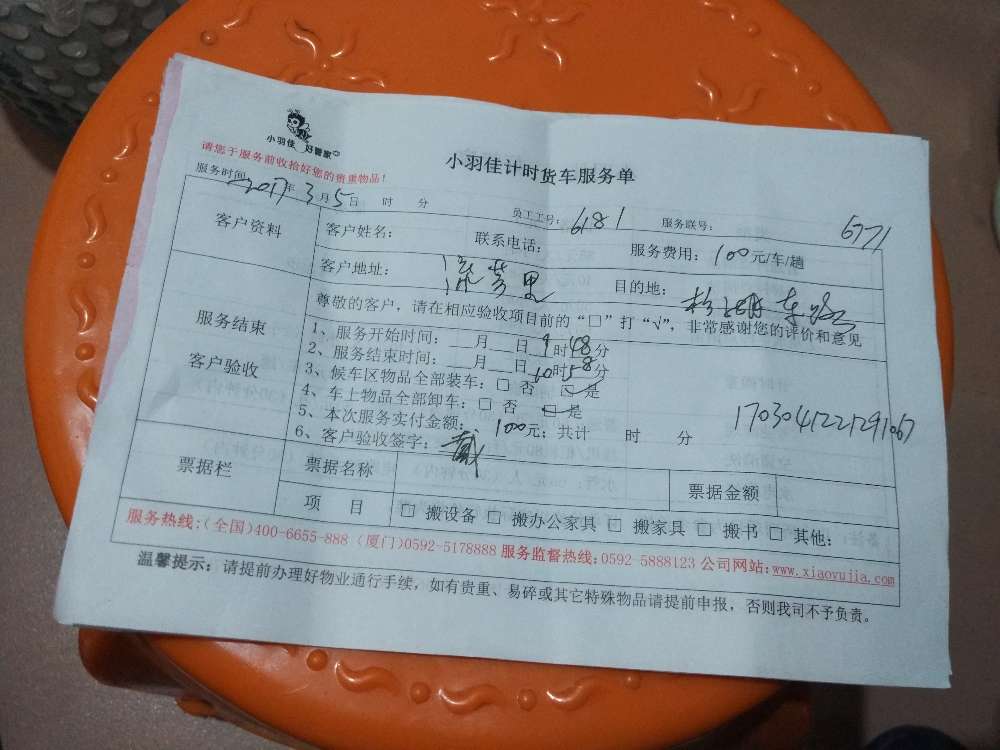 小羽佳 好管家
小羽佳计时货车服务单
请您于服务前收拾好您的贵重物品!
服务时间: 2017年3月5日 时 分 员工工号: 6181 服务联号: 6771
客户资料 客户姓名: 联系电话: 服务费用: 100元/车/趟
客户地址: 目的地:
尊敬的客户，请在相应验收项目前的“□”打“√”，非常感谢您的评价和意见
服务结束
客户验收
1、服务开始时间: 月 日9时48分
2、服务结束时间: 月 日10时58分
3、候车区物品全部装车: □ 否 □ 是
4、车上物品全部卸车: □ 否 □ 是
5、本次服务实付金额: 100元; 共计 时 分
17030412221291067
6、客户验收签字: 戴
票据栏 票据名称 票据金额
项 目 □ 搬设备 □ 搬办公家具 □ 搬家具 □ 搬书 □ 其他:
服务热线:(全国)400-6655-888 (厦门)0592-5178888 服务监督热线:0592-5888123 公司网站:www.xiaoyujia.com
温馨提示: 请提前办理好物业通行手续，如有贵重、易碎或其它特殊物品请提前申报，否则我司不予负责。